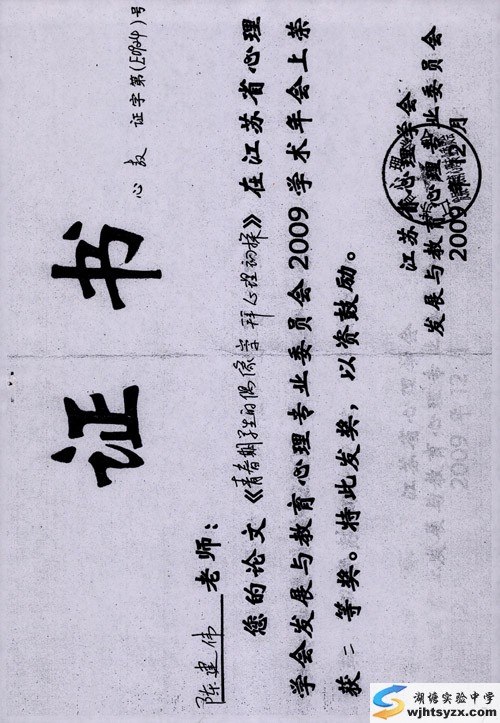 证书
心教 证字第(E0924)号
陈建伟 老师：
您的论文《青春期学生的偶像崇拜心理初探》在江苏省心理
学会发展与教育心理专业委员会2009学术年会上荣
获 二 等奖。特此发奖，以资鼓励。
江苏省心理学会
发展与教育心理专业委员会
2009年12月
湖塘实验中学
wjhtsyzx.com